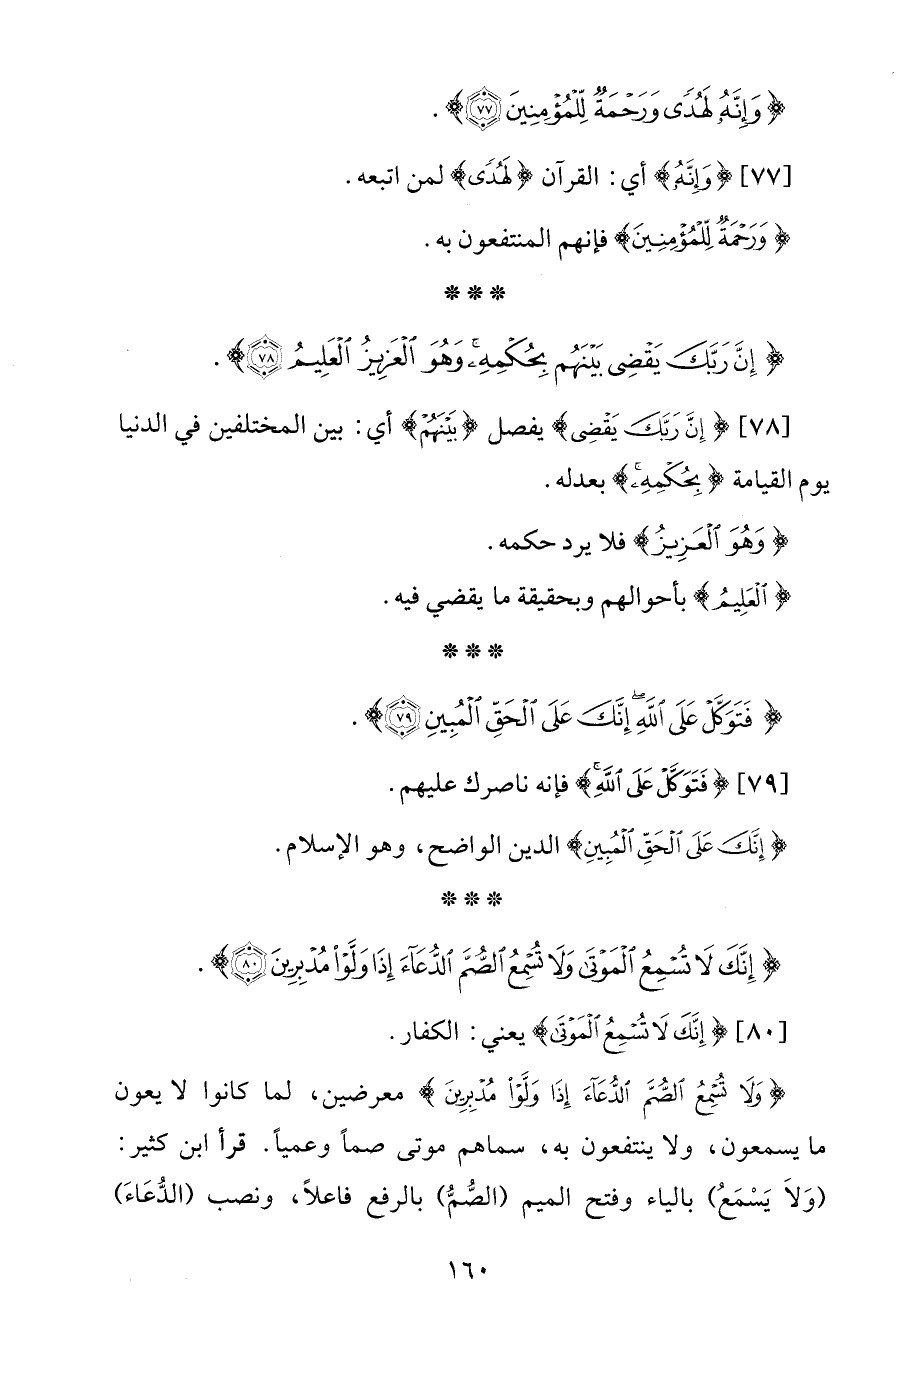 ﴿ وَإِنَّهُ لَهُدًى وَرَحْمَةٌ لِّلْمُؤْمِنِينَ ٧٧ ﴾ .
[٧٧] ﴿ وَإِنَّهُ ﴾ أي : القرآن ﴿ لَهُدًى ﴾ لمن اتبعه .
﴿ وَرَحْمَةٌ لِّلْمُؤْمِنِينَ ﴾ فإنهم المنتفعون به .
* * *
﴿ إِنَّ رَبَّكَ يَقْضِى بَيْنَهُم بِحُكْمِهِۦۚ وَهُوَ ٱلْعَزِيزُ ٱلْعَلِيمُ ٧٨ ﴾ .
[٧٨] ﴿ إِنَّ رَبَّكَ يَقْضِى ﴾ يفصل ﴿ بَيْنَهُمْ ﴾ أي : بين المختلفين في الدنيا
يوم القيامة ﴿ بِحُكْمِهِۦ ﴾ بعدله .
﴿ وَهُوَ ٱلْعَزِيزُ ﴾ فلا يرد حكمه .
﴿ ٱلْعَلِيمُ ﴾ بأحوالهم وبحقيقة ما يقضي فيه .
* * *
﴿ فَتَوَكَّلْ عَلَى ٱللَّهِۖ إِنَّكَ عَلَى ٱلْحَقِّ ٱلْمُبِينِ ٧٩ ﴾ .
[٧٩] ﴿ فَتَوَكَّلْ عَلَى ٱللَّهِۚ ﴾ فإنه ناصرك عليهم .
﴿ إِنَّكَ عَلَى ٱلْحَقِّ ٱلْمُبِينِ ﴾ الدين الواضح ، وهو الإسلام .
* * *
﴿ إِنَّكَ لَا تُسْمِعُ ٱلْمَوْتَىٰ وَلَا تُسْمِعُ ٱلصُّمَّ ٱلدُّعَآءَ إِذَا وَلَّوْا۟ مُدْبِرِينَ ٨٠ ﴾ .
[٨٠] ﴿ إِنَّكَ لَا تُسْمِعُ ٱلْمَوْتَىٰ ﴾ يعني : الكفار .
﴿ وَلَا تُسْمِعُ ٱلصُّمَّ ٱلدُّعَآءَ إِذَا وَلَّوْا۟ مُدْبِرِينَ ﴾ معرضين ، لما كانوا لا يعون
ما يسمعون ، ولا ينتفعون به ، سماهم موتى صماً وعمياً . قرأ ابن كثير :
(وَلاَ يَسْمَعُ) بالياء وفتح الميم (الصُّمُّ) بالرفع فاعلاً ، ونصب (الدُّعَاءَ)
١٦٠